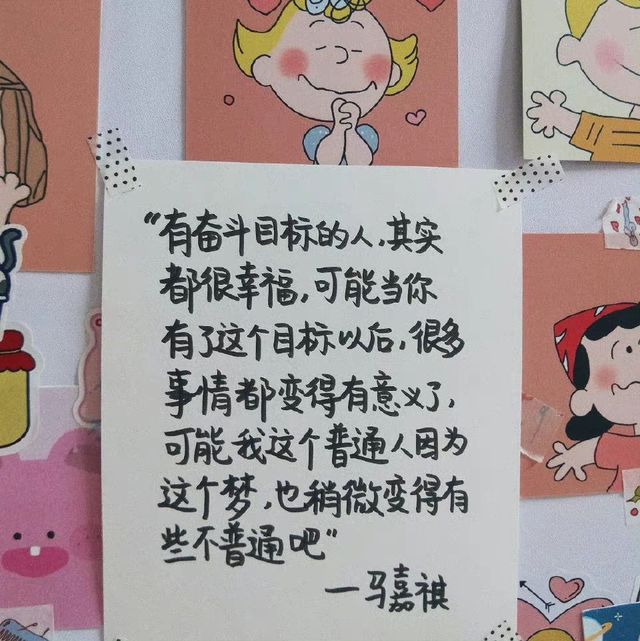 “有奋斗目标的人,其实
都很幸福,可能当你
有了这个目标以后,很多
事情都变得有意义了,
可能我这个普通人因为
这个梦,也稍微变得有
些不普通吧”
—马嘉祺